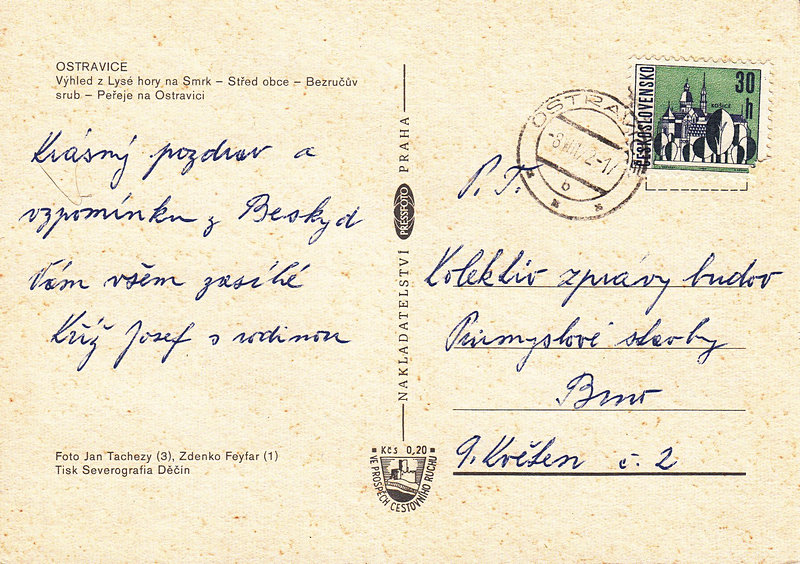 OSTRAVICE
Výhled z Lysé hory na Smrk – Střed obce – Bezručův
srub – Peřeje na Ostravici
Krásný pozdrav a
vzpomínku z Beskyd
Vám všem zasílé
Kříž Josef s rodinou
Foto Jan Tachezy (3), Zdenko Feyfar (1)
Tisk Severografia Děčín
NAKLADATELSTVÍ PRESSFOTO PRAHA
Kčs 0,20
VE PROSPĚCH CESTOVNÍHO RUCHU
ČESKOSLOVENSKO
30
h
P. T.
Kolektiv zprávy budov
Průmyslové stavby
Brno
9. Květen č. 2